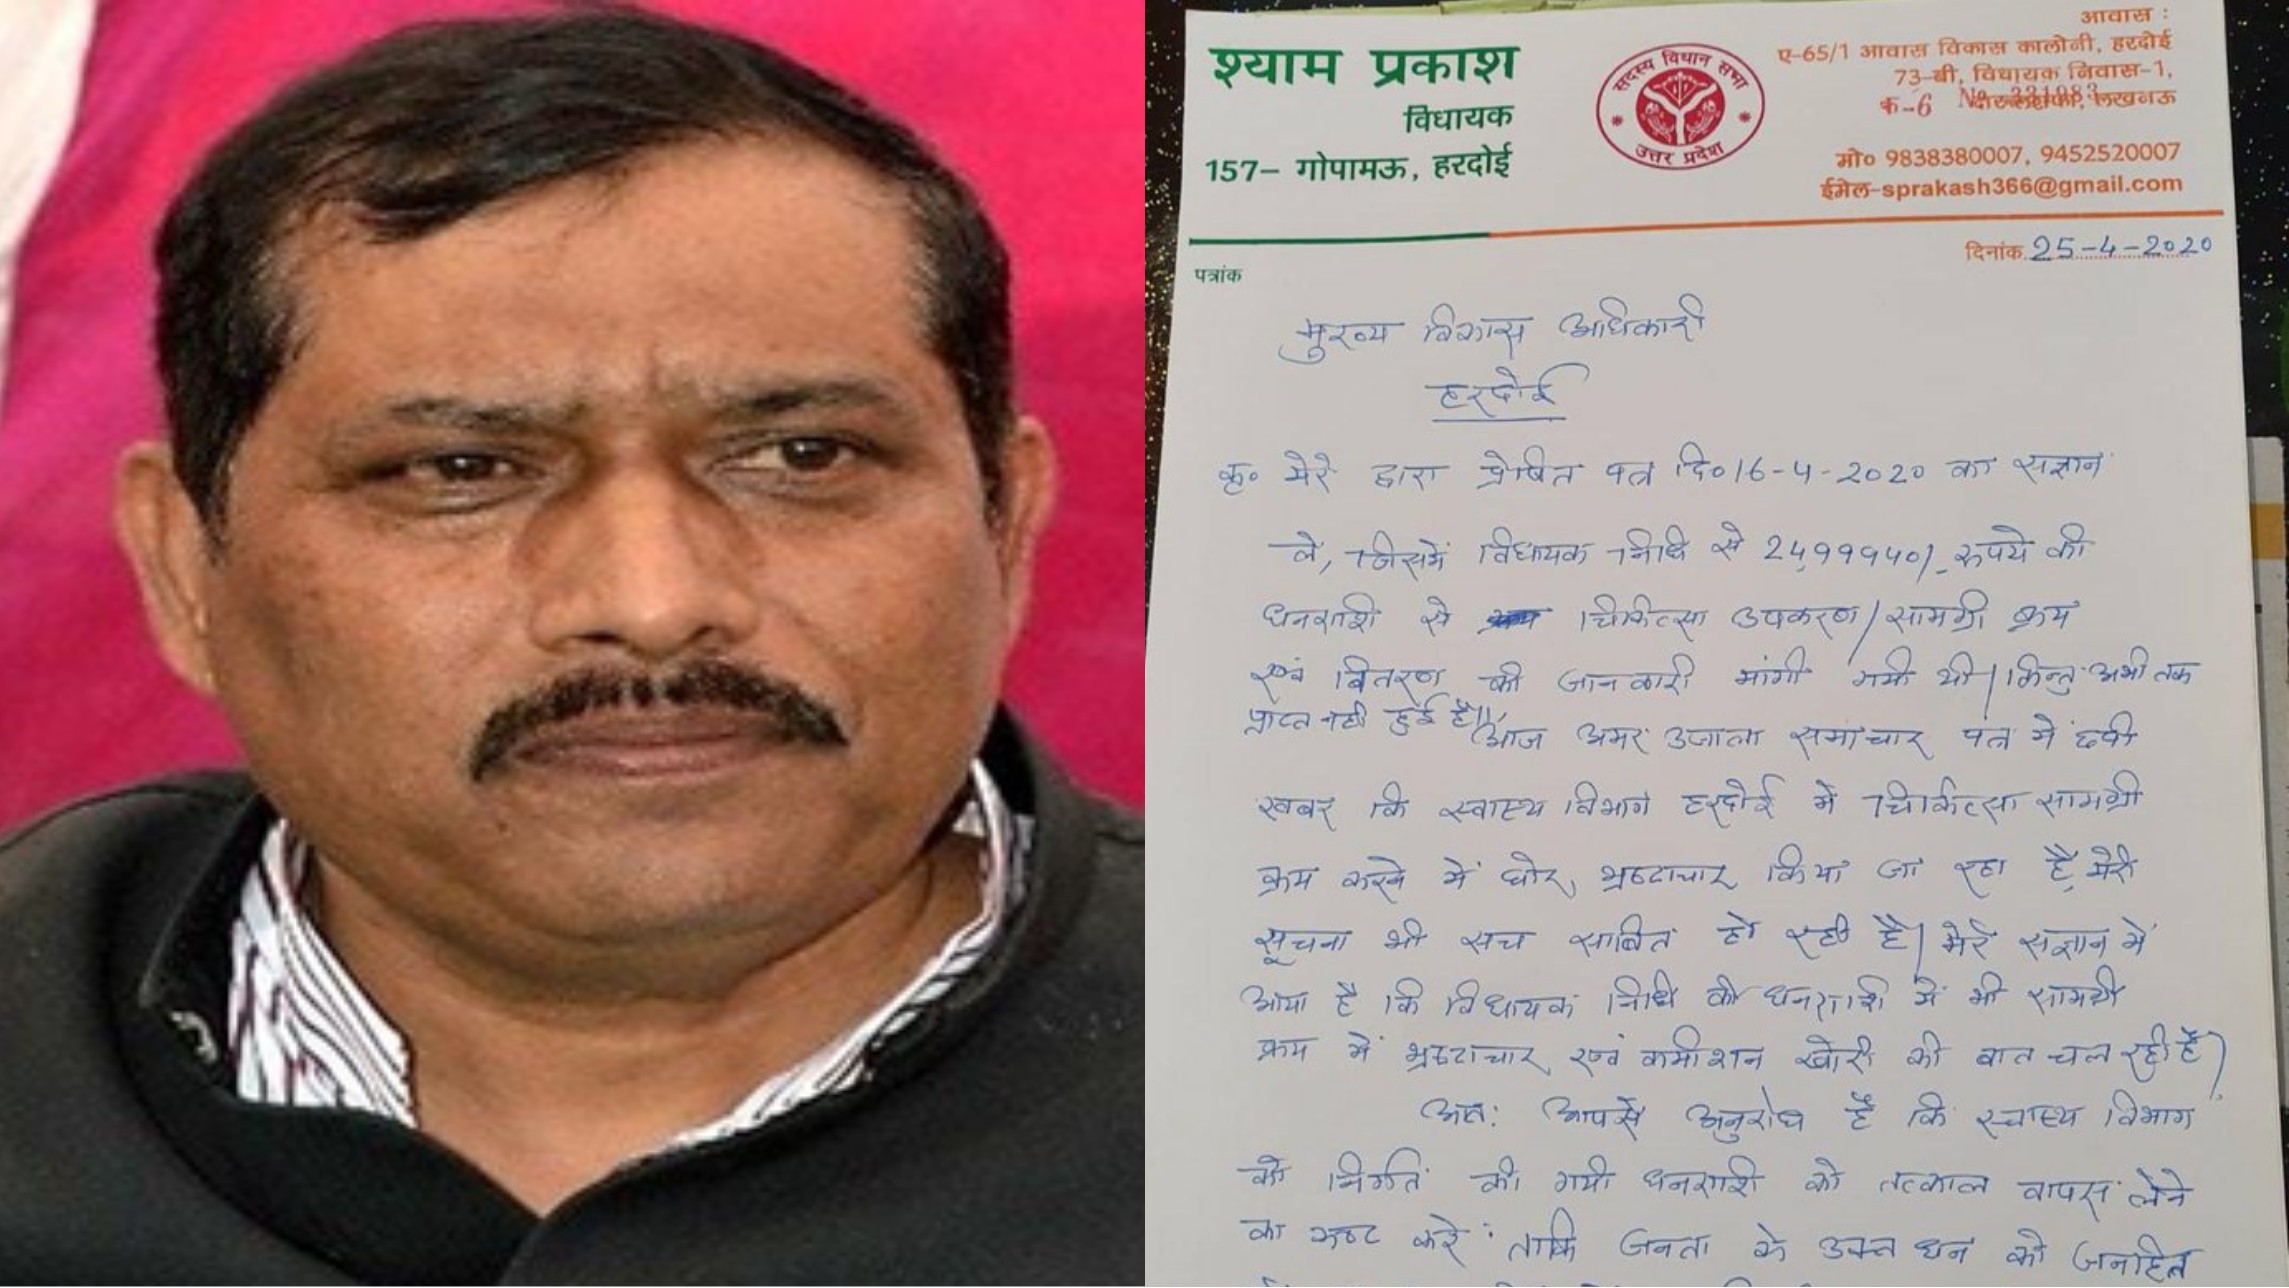 श्याम प्रकाश
विधायक
157– गोपामऊ, हरदोई
सदस्य विधान सभा
उत्तर प्रदेश
आवास :
ए-65/1 आवास विकास कालोनी, हरदोई
73-बी, विधायक निवास-1,
क-6 लखनऊ
मो० 9838380007, 9452520007
ईमेल-sprakash366@gmail.com
दिनांक 25-4-2020
पत्रांक
मुख्य विकास अधिकारी
हरदोई
कृ० मेरे द्वारा प्रेषित पत्र दि० 16-4-2020 का सज्ञान
ले, जिसमें विधायक निधि से रुपये की
धनराशि से चिकित्सा उपकरण/सामग्री क्रय
एवं वितरण की जानकारी मांगी गयी थी। किन्तु अभी तक
प्राप्त नही हुई है।
आज अमर उजाला समाचार पत्र में छपी
खबर कि स्वास्थ्य विभाग हरदोई में चिकित्सा सामग्री
क्रय करने में घोर भ्रष्टाचार किया जा रहा है, मेरी
सूचना भी सच साबित हो रही है। मेरे सज्ञान में
आया है कि विधायक निधि की धनराशि में भी सामग्री
क्रय में भ्रष्टाचार एवं कमीशन खोरी की बात चल रही है।
अतः आपसे अनुरोध है कि स्वास्थ्य विभाग
को निर्गत की गयी धनराशि को तत्काल वापस लेने
का कष्ट करें ताकि जनता के उक्त धन को जनहित